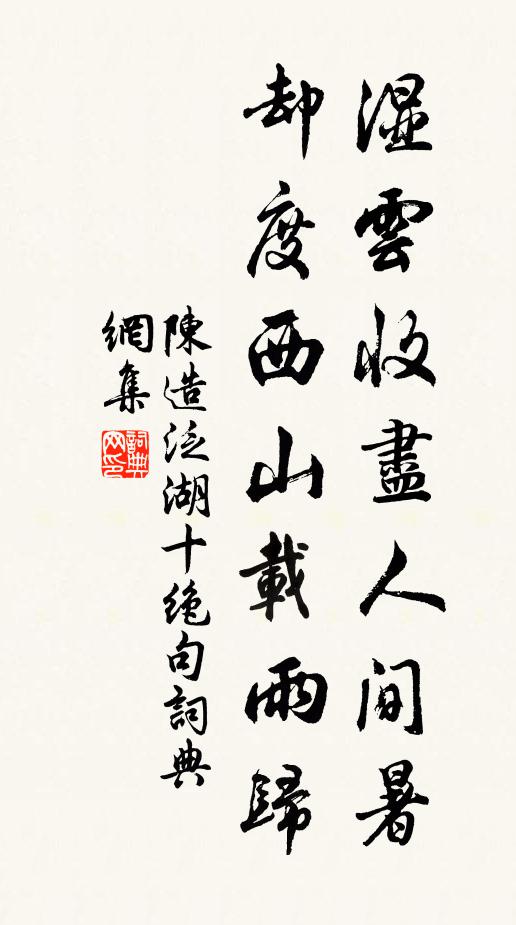 湿雲收盡人間暑
却度西山載雨歸
陳造泛湖十绝句詞典
網集
詞典
网印